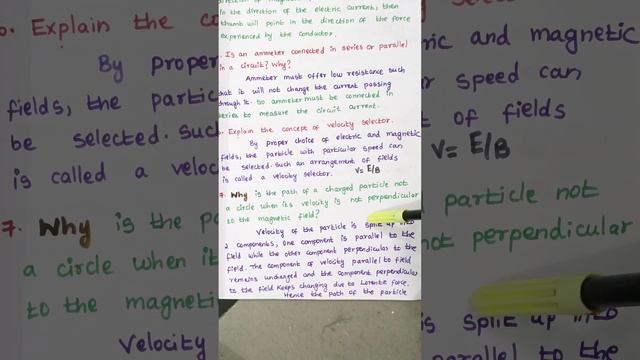 direction of magnetic
in the direction of the electric current, then
thumb will point in the direction of the force
experienced by the conductor.
Is an ammeter connected in series or parallel
in a circuit? Why?
Ammeter must offer low resistance such
that it will not change the current passing
through it. So ammeter must be connected in
series to measure the circuit current.
Explain the concept of velocity selector.
By proper choice of electric and magnetic
fields, the particle with particular speed can
be selected. Such an arrangement of fields
is called a velocity selector. V= E/B
7. Why is the path of a charged particle not
a circle when its velocity is not perpendicular
to the magnetic field?
Velocity of the particle is split up into
2 components, one component is parallel to the
field while the other component perpendicular to the
field. The component of velocity parallel to field
remains unchanged and the component perpendicular
to the field keeps changing due to Lorentz force.
Hence the path of the particle